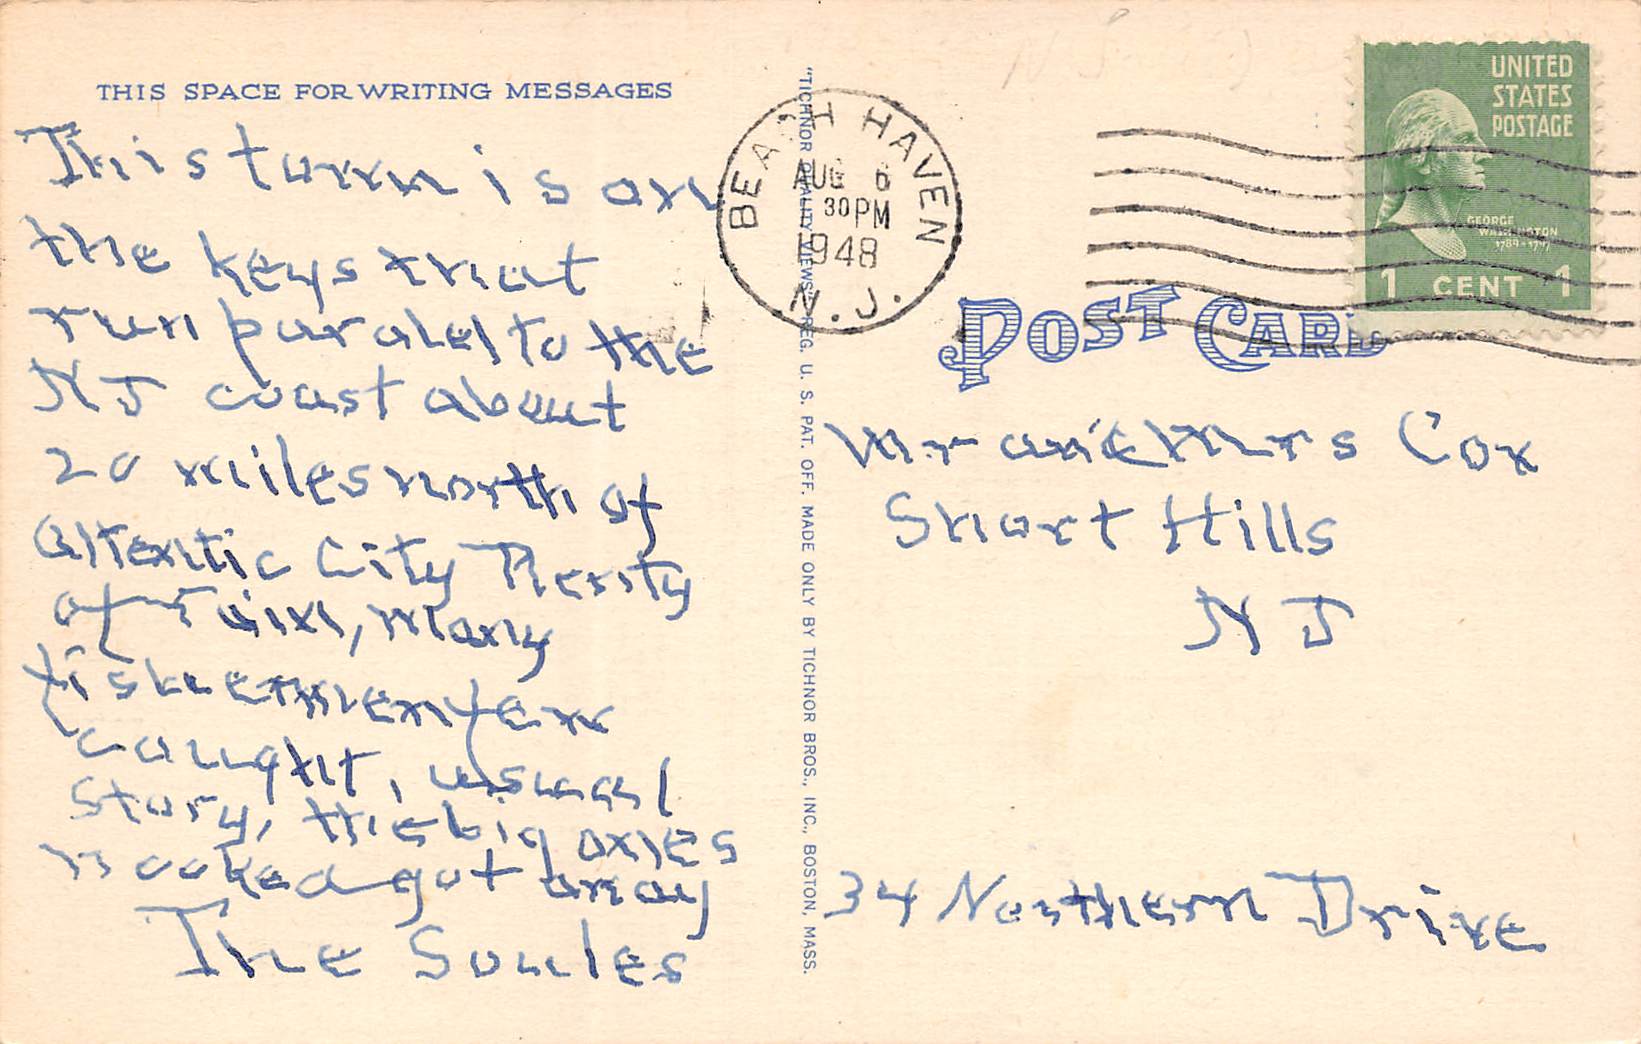 THIS SPACE FOR WRITING MESSAGES
This town is on
the keys that
run paralel to the
NJ coast about
20 miles north of
Atlantic City Plenty
of rain, Many
fishermen few
caught, usual
story, the big ones
hooked got away
The Soules
"TICHNOR QUALITY VIEWS" REG. U. S. PAT. OFF. MADE ONLY BY TICHNOR BROS., INC., BOSTON, MASS.
BEACH HAVEN
AUG 6
30 PM
1948
N.J.
UNITED
STATES
POSTAGE
GEORGE
WASHINGTON
1789-1797
1 CENT 1
POST CARD
Mr and Mrs Cox
Short Hills
NJ
34 Northern Drive